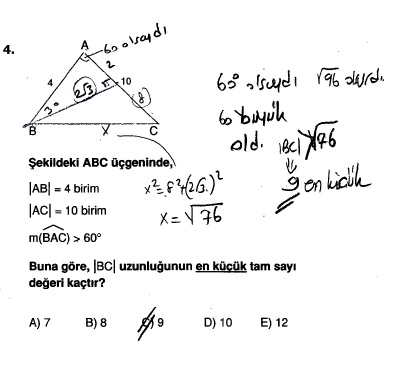 4.
A
60 olsaydı
2
4
10
2√3
3°
8
B
x
C
60° olsaydı √76 olurdu.
60 büyük
old. |BC| > √76
9 en küçük
Şekildeki ABC üçgeninde,
|AB| = 4 birim
|AC| = 10 birim
m(BAC) > 60°
x² = 8² + (2√3)²
x = √76
Buna göre, |BC| uzunluğunun en küçük tam sayı
değeri kaçtır?
A) 7 B) 8 C) 9 D) 10 E) 12